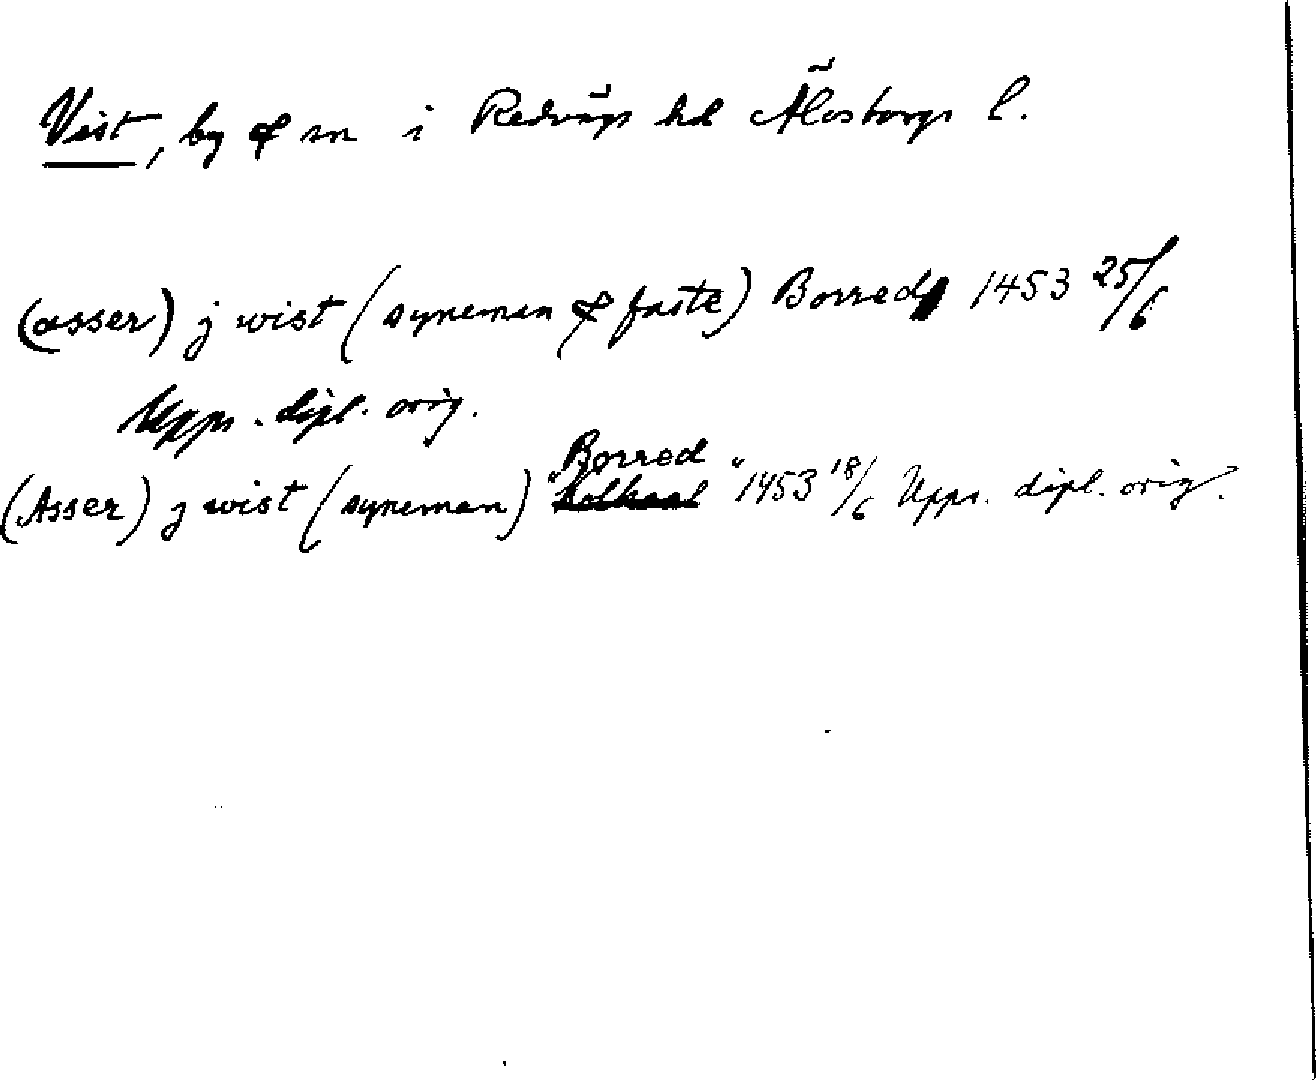 Vist, by & sn i Redvägs hd Älvsborgs l.
(asser) j wist (syneman & faste) Borred 1453 25/6
Upps. dipl. orig.
Borred
(Asser) j wist (syneman) " " 1453 18/6 Upps. dipl. orig.